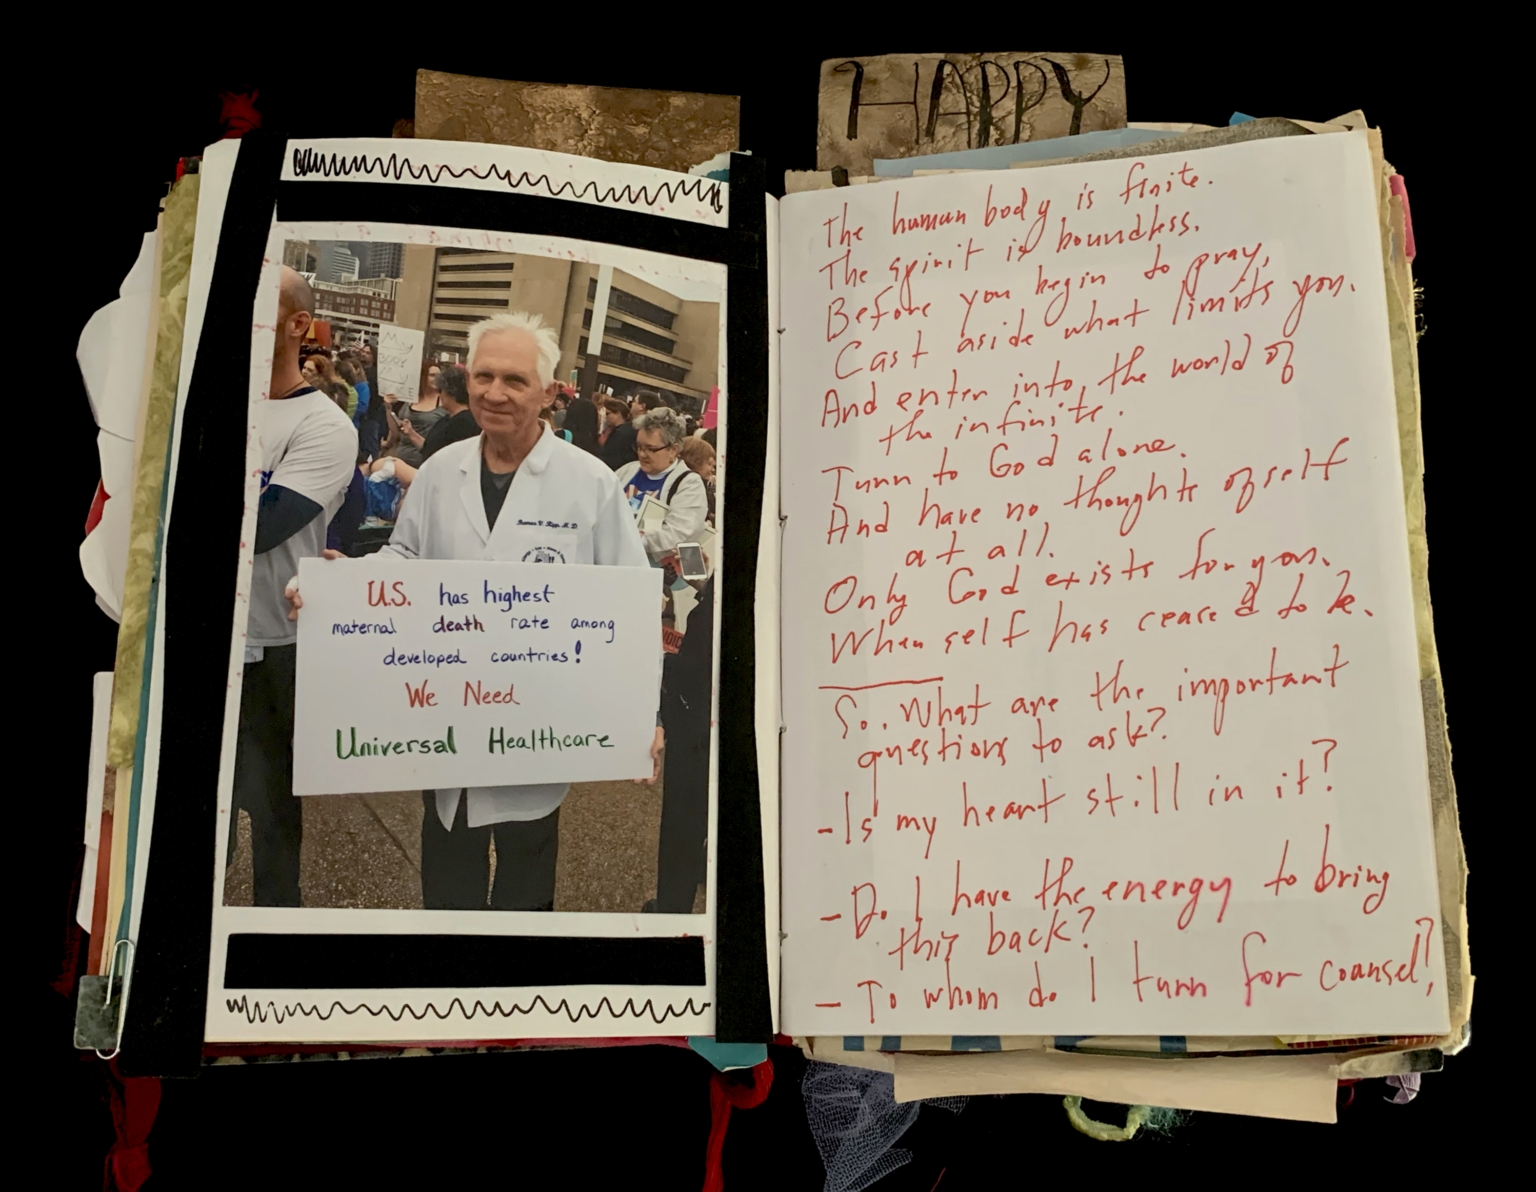 HAPPY
My
BODY
My
U.S. has highest
maternal death rate among
developed countries!
We Need
Universal Healthcare
The human body is finite.
The spirit is boundless.
Before you begin to pray,
Cast aside what limits you.
And enter into, the world of
the infinite.
Turn to God alone.
And have no thoughts of self
at all.
Only God exists for you.
When self has ceased to be.
So. What are the important
questions to ask?
- Is my heart still in it?
- Do I have the energy to bring
this back?
- To whom do I turn for counsel?